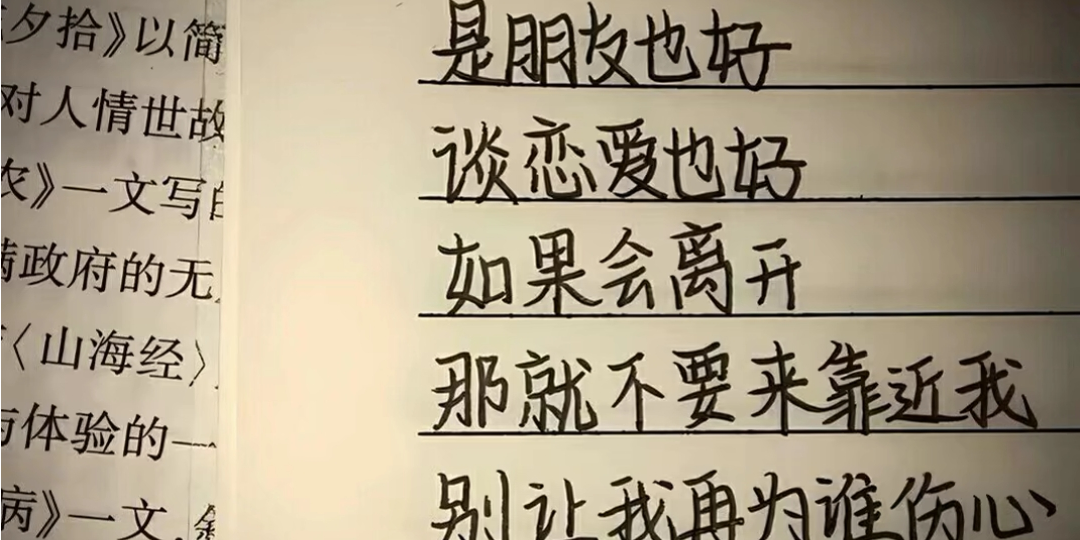 夕拾》以简
对人情世故
农》一文写
政府的无
〈山海经〉
体验的一
病》一文
是朋友也好
谈恋爱也好
如果会离开
那就不要来靠近我
别让我再为谁伤心